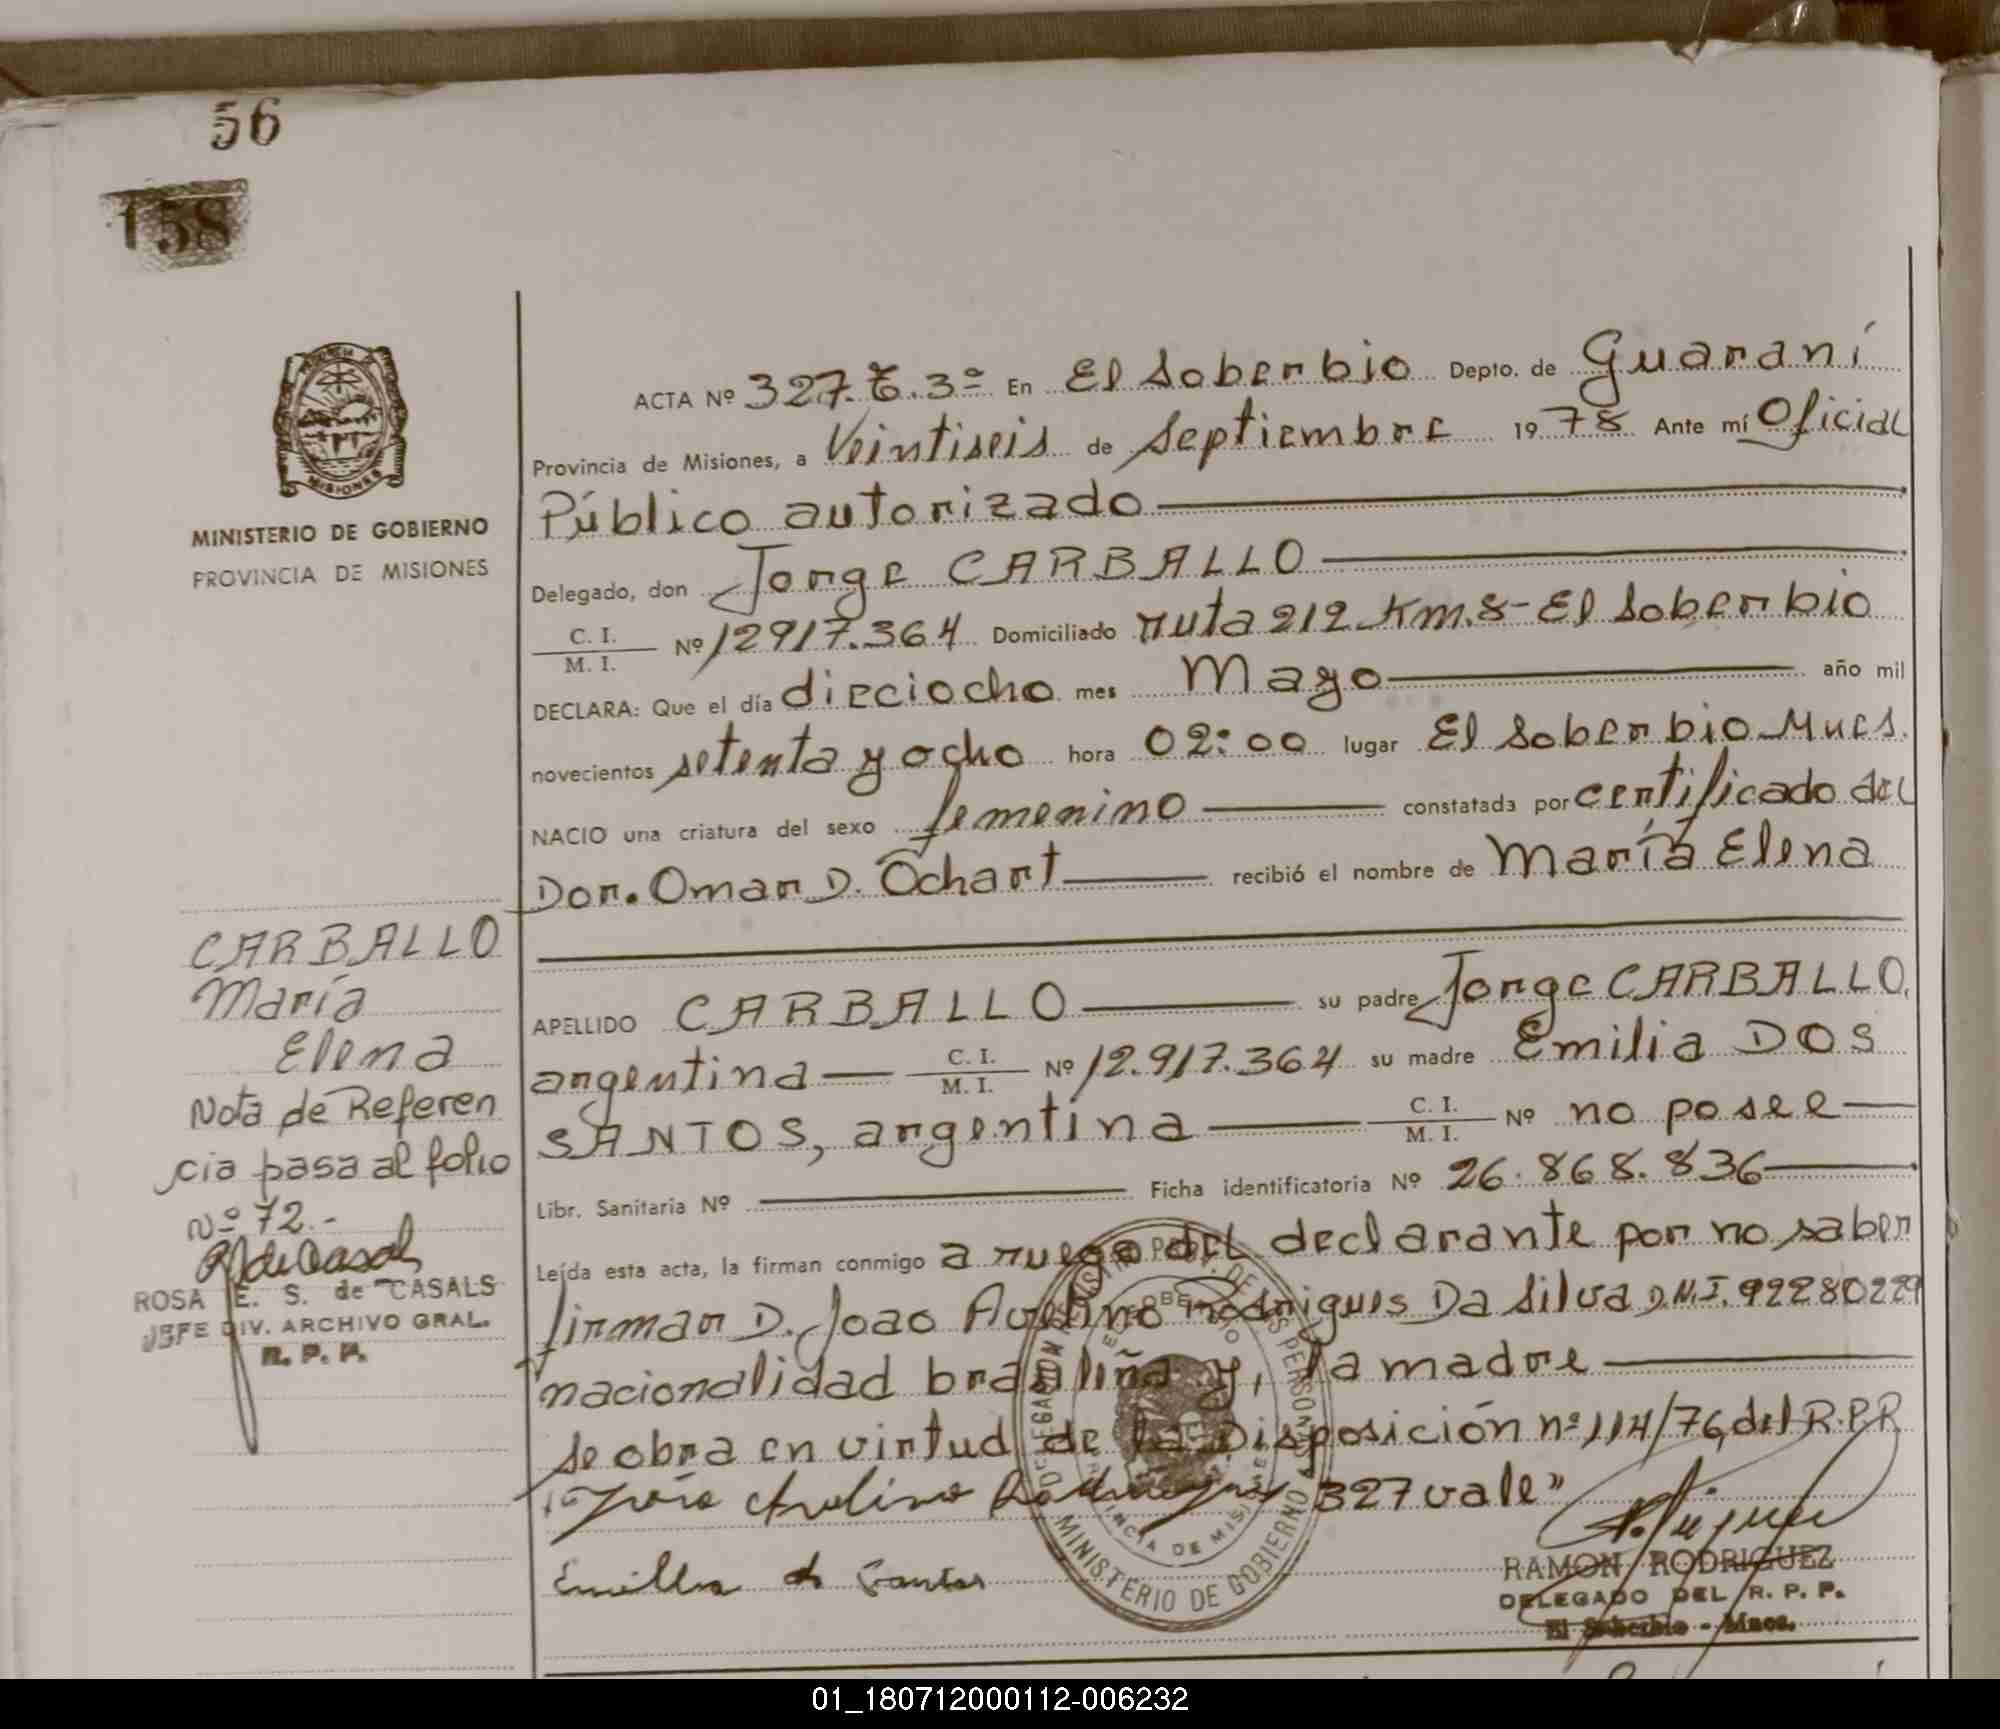 56
158
ACTA Nº 327.T.3º En El Soberbio Depto. de Guaraní
Provincia de Misiones, a Veintiseis de Septiembre 1978 Ante mí Oficial
Público autorizado
Delegado, don Jorge CARBALLO
C. I.
M. I. Nº 12917.364 Domiciliado ruta 212 Km.8-El Soberbio
DECLARA: Que el día dieciocho mes Mayo año mil
novecientos setenta y ocho hora 02:00 lugar El Soberbio Mnes.
NACIO una criatura del sexo femenino constatada por certificado del
Dor. Omar D. Ochart recibió el nombre de María Elena
APELLIDO CARBALLO su padre Jorge CARBALLO,
argentina C. I. M. I. Nº 12.917.364 su madre Emilia DOS
SANTOS, argentina C. I. M. I. Nº no posee
Libr. Sanitaria Nº Ficha identificatoria Nº 26.868.836
Leída esta acta, la firman conmigo a ruego del declarante por no saber
firmar D. Joao Avelino rodrigues Da Silva D.N.I. 92280229
nacionalidad brasileña y, la madre
se obra en virtud de la Disposición nº 114/76, del R.P.P.
327 vale"
RAMON RODRIGUEZ
DELEGADO DEL R. P. P.
El Soberbio - Mnes.
MINISTERIO DE GOBIERNO
PROVINCIA DE MISIONES
CARBALLO
María
Elena
Nota de Referen
cia pasa al folio
Nº 72.-
ROSA E. S. de CASALS
JEFE DIV. ARCHIVO GRAL.
R. P. P.
MINISTERIO DE GOBIERNO
01_180712000112-006232